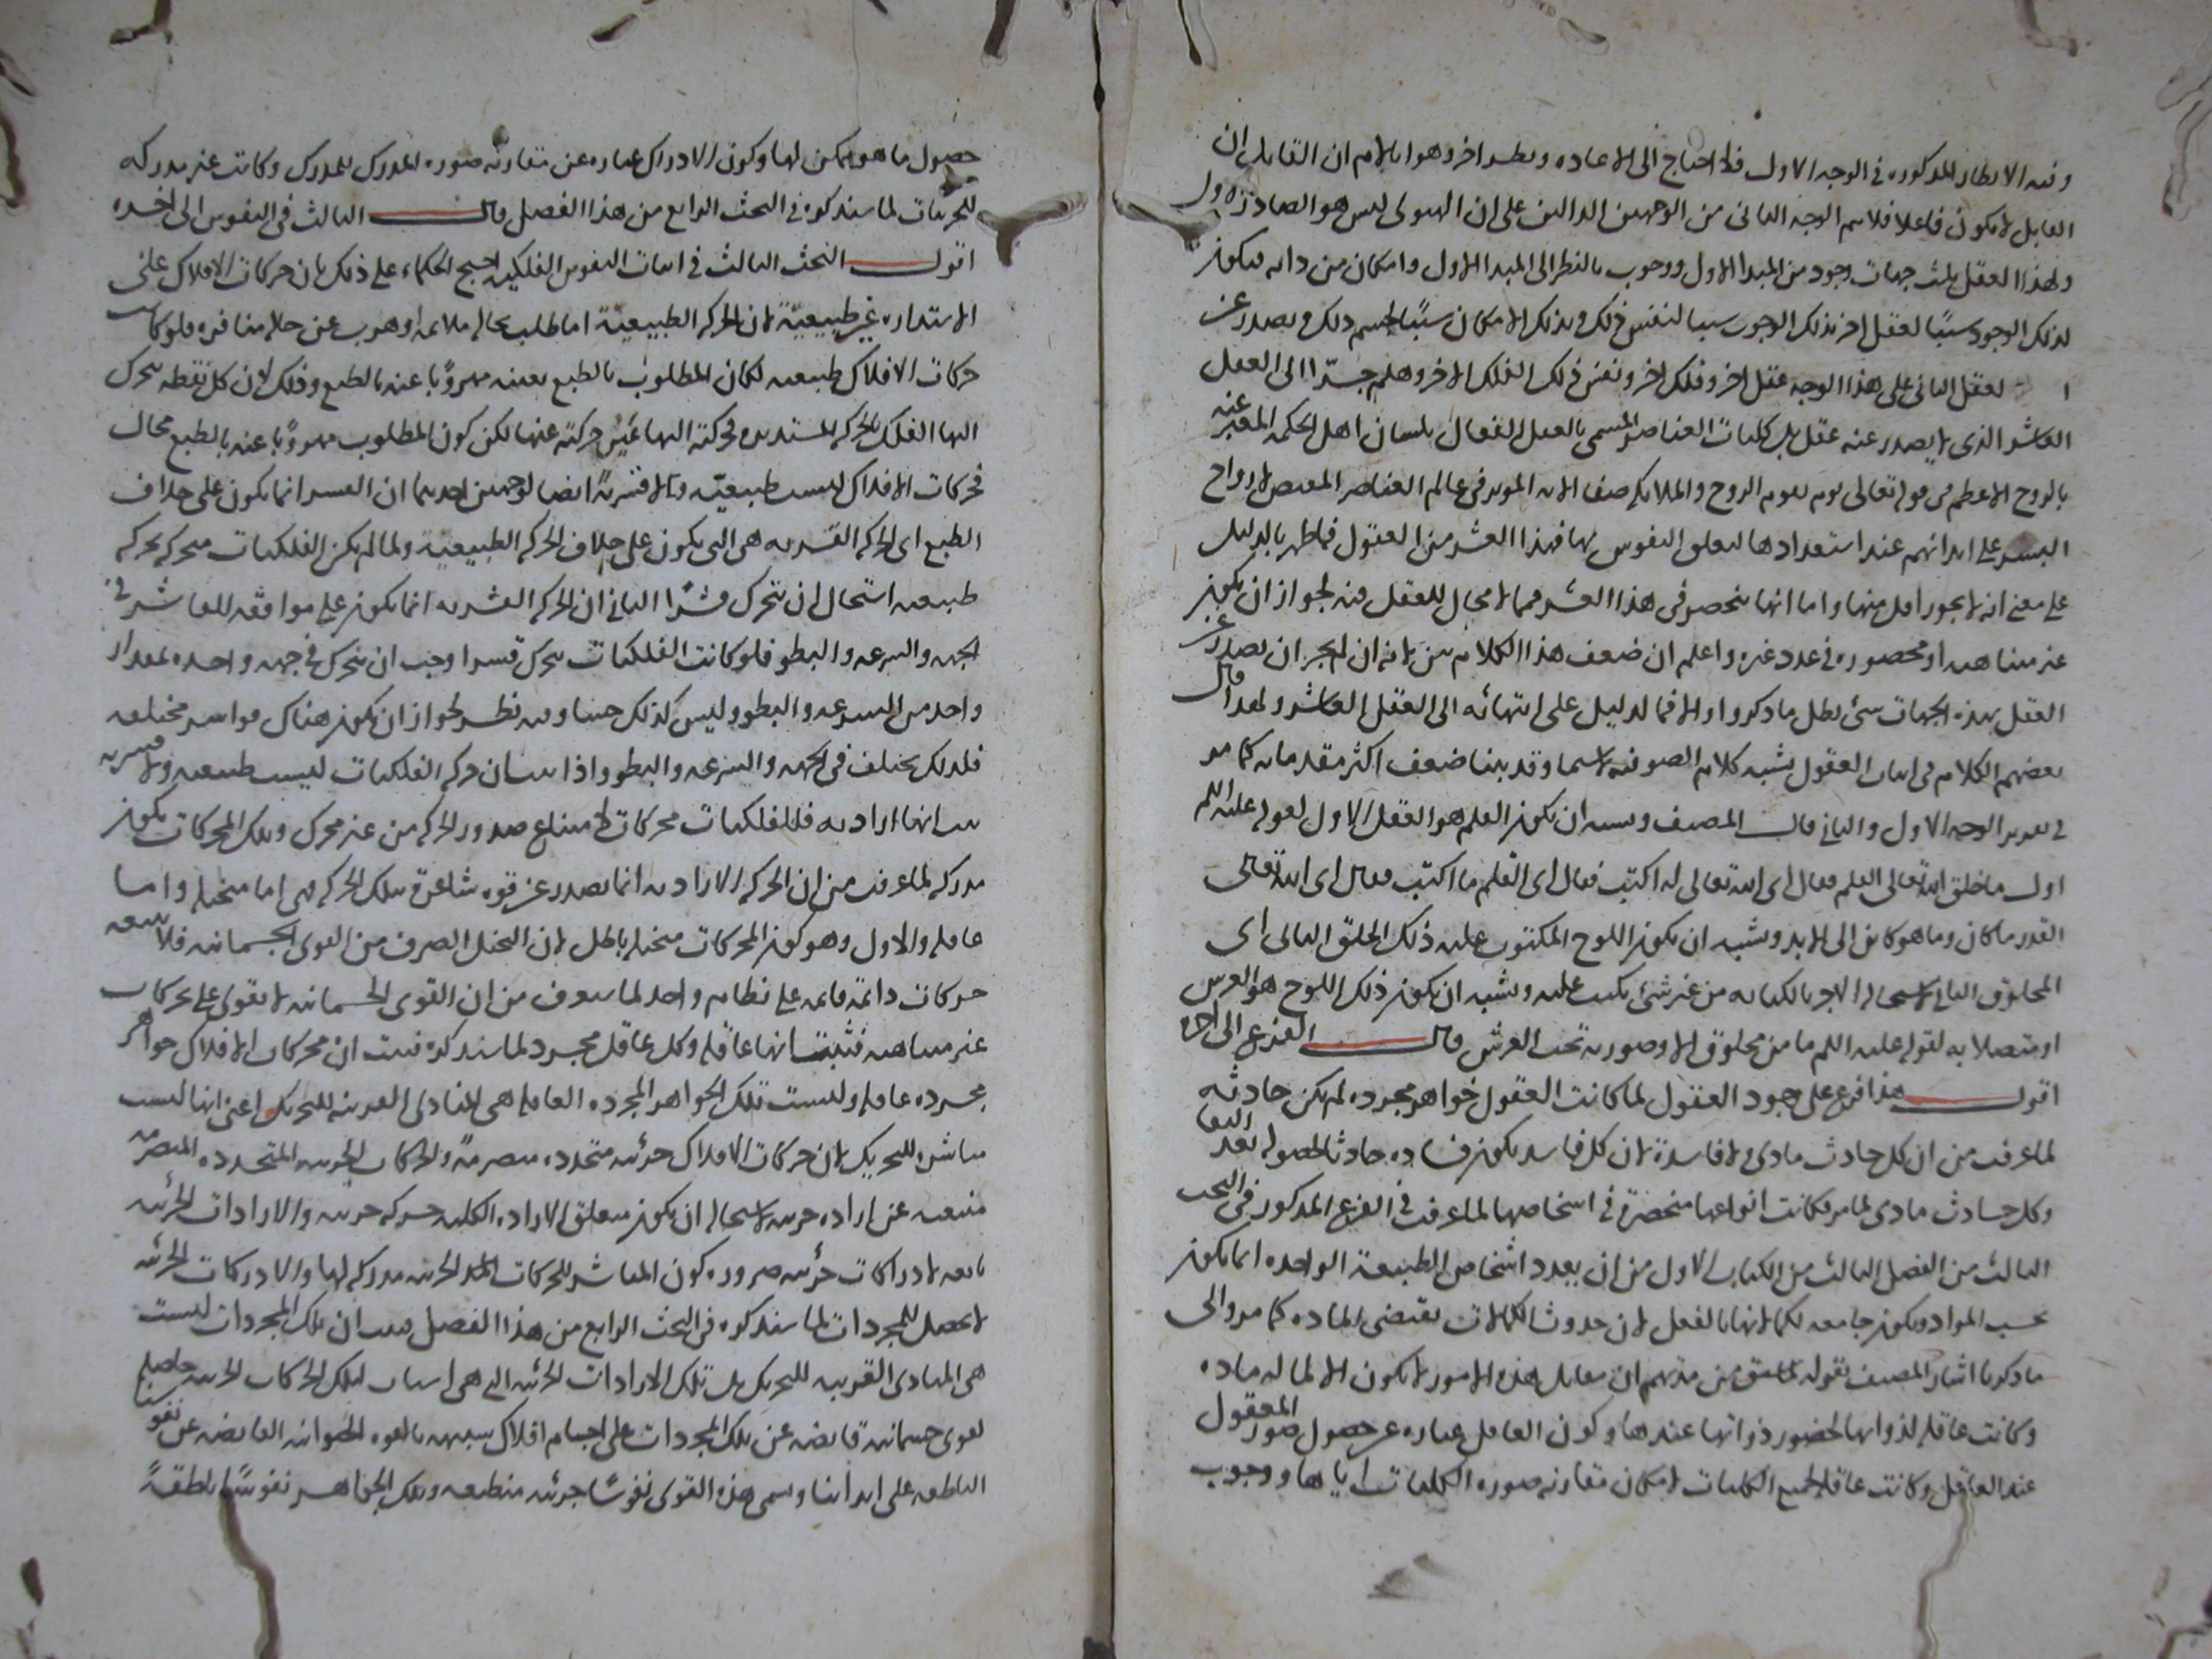 وفيه الانظار المذكورة في الوجه الاول فلا احتاج الى الاعادة ونظر اخر وهو انا لا نم ان القابل ان
القابل لا يكون فاعلا فلا يتم الوجه الثاني من الوجهين الدالين على ان الهيولى ليس هو الصادر الاول
ولهذا العقل ثلث جهات وجود من المبدا الاول ووجوب بالنظر الى المبدا الاول وامكان من ذاته فيكون
لذلك الوجود سببًا لعقل اخر بذلك الوجوب سببا لنفس فلك وبذلك الامكان سببًا لجسم ذلك ويصدر عن
العقل الثاني على هذا الوجه عقل اخر وفلك اخر ونفس فلك الفلك الاخر وهلم جرّا الى العقل
العاشر الذي لا يصدر عنه عقل بل كليات العناصر المسمى بالعقل الفعال بلسان اهل الحكمة المعبر عنه
بالروح الاعظم في قوله تعالى يوم يقوم الروح والملائكة صفا لانه الموثر في عالم العناصر المفيض لارواح
البشر على ابدانهم عند استعدادها لتعلق النفوس بها فهذا العشر من العقول فما ظهر بالدليل
على معنى انه لا يجوز اقل منها واما انها تنحصر في هذا العشر فمما لا مجال للعقل فيه لجواز ان يكون
غير متناهية او محصورة في عدد غيره واعلم ان ضعف هذا الكلام بين لانه ان لم يجز ان يصدر عن
العقل بهذه الجهات شئ بطل ما ذكروا والا فما الدليل على انتهائه الى العقل العاشر ولهذا قال
بعضهم الكلام في اثبات العقول يشبه كلام الصوفية لاسيما وقد بينا ضعف اكثر مقدماته كما مر
في تقرير الوجه الاول والثاني قال المصنف ويشبه ان يكون القلم هو العقل الاول لقوله عليه السلم
اول ما خلق الله تعالى القلم فقال اى الله تعالى له اكتب فقال اى القلم ما اكتب فقال اى الله تعالى
القدر ما كان وما هو كائن الى الابد ويشبه ان يكون اللوح المكتوب عليه ذلك الخلق الثاني اى
المخلوق الثاني لاستحالة الامر بالكتابة من غير شئ يكتب عليه ويشبه ان يكون ذلك اللوح هو العرش
او متصلا به لقوله عليه السلم ما من مخلوق الا وصورته تحت العرش قال الفرع الى اخره
اقول هذا فرع على وجود العقول لما كانت العقول جواهر مجردة لم تكن حادثة
لما عرفت من ان كل حادث مادى ولا فاسدة لان كل فاسد يكون فساده حادثا لحصوله بعد البقا
وكل حادث مادى لما مر فكانت انواعها منحصرة في اشخاصها لما عرفت في الفرع المذكور في البحث
الثالث من الفصل الثالث من الكتاب الاول من ان تعدد اشخاص الطبيعة الواحدة انما يكون
بحسب المواد ويكون جامعة لكمالاتها بالفعل لان حدوث الكمالات يقتضى المادة كما مر والى
ما ذكرنا اشار المصنف بقوله لما سبق من مذهبهم ان مقابل هذه الامور لا يكون الا لما له مادة
وكانت عاقلة لذواتها لحضور ذواتها عندها وكون العاقل عبارة عن حصول صور المعقول
عند العاقل وكانت عاقلة لجميع الكليات لامكان مقارنة صورة الكليات اياها ووجوب
حصول ما هو ممكن لها وكون الادراك عبارة عن مقارنة صورة المدرك للمدرك وكانت غير مدركة
للجزئيات لما سنذكره في البحث الرابع من هذا الفصل قال الثالث في النفوس الى اخره
اقول البحث الثالث في اثبات النفوس الفلكية احتج الحكماء على ذلك بان حركات الافلاك على
الاستدارة غير طبيعيّة لان الحركة الطبيعية اما طلب حالة ملائمة او هرب عن حالة منافرة فلو كانت
حركات الافلاك طبيعية لكان المطلوب بالطبع بعينه مهروبًا عنه بالطبع وذلك لان كل نقطة يتحرك
اليها الفلك بالحركة المستديرة فحركته اليها عين حركته عنها لكن كون المطلوب مهروبًا عنه بالطبع محال
فحركات الافلاك ليست طبيعيّة ولا قسرية ايضا لوجهين احدهما ان القسر انما يكون على خلاف
الطبع اى الحركة القسرية هى التى يكون على خلاف الحركة الطبيعية ولما لم يكن الفلكيات متحركة بحركة
طبيعية استحال ان تتحرك قسرًا الثاني ان الحركة القسرية انما تكون على موافقة للقاسر في
الجهة والسرعة والبطو فلو كانت الفلكيات تتحرك قسرا وجب ان تتحرك في جهة واحدة بمقدار
واحد من السرعة والبطو وليس كذلك حسا وفيه نظر لجواز ان يكون هناك قواسر مختلفة
فلذلك يختلف في الجهة والسرعة والبطو واذا ثبت ان حركة الفلكيات ليست طبيعية ولا قسرية
ثبت انها ارادية فللفلكيات محركات لامتناع صدور الحركة من غير محرك وتلك المحركات يكون
مدركة لما عرفت من ان الحركة الارادية انما تصدر عن قوة شاعرة بتلك الحركة فهى اما متخيلة واما
عاقلة والاول وهو كون المحركات متخيلة باطل لان التخيل الصرف من القوى الجسمانية فلا يتبعه
حركات دائمة قائمة على نظام واحد لما سيعرف من ان القوى الجسمانية لا تقوى على تحريكات
غير متناهية فثبت انها عاقلة وكل عاقل مجرد لما سنذكره فثبت ان محركات الافلاك جواهر
مجردة عاقلة وليست تلك الجواهر المجردة العاقلة هى المبادى القريبة للتحريك اعنى انها ليست
مباشرة للتحريك لان حركات الافلاك جزئية متجددة متصرمة والحركات الجزئية المتجددة المتصرمة
منبعثة عن ارادة جزئية لاستحالة ان يكون متعلق الارادة الكلية حركة جزئية والارادات الجزئية
تابعة لادراكات جزئية ضرورة كون المباشر للحركات الجزئية مدركة لها والادراكات الجزئية
لا تحصل للمجردات لما سنذكره في البحث الرابع من هذا الفصل فثبت ان تلك المجردات ليست
هى المبادى القريبة للتحريك بل تلك الارادات الجزئية التي هى اسباب لتلك الحركات الجزئية حاصلة
لقوى جسمانية فايضة عن تلك المجردات على اجسام افلاك شبيهة بالقوة الحيوانية الفايضة عن نفوسنا
الناطقة على ابداننا ويسمى هذه القوى نفوسًا جزئية منطبعة وتلك الجواهر نفوسًا ناطقةً